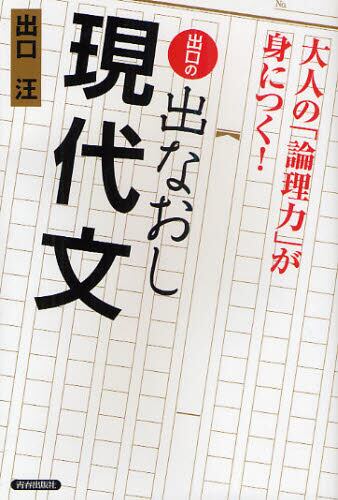 No.
大人の「論理力」が
身につく!
出口の
出なおし
現代文
出口 汪
青春出版社